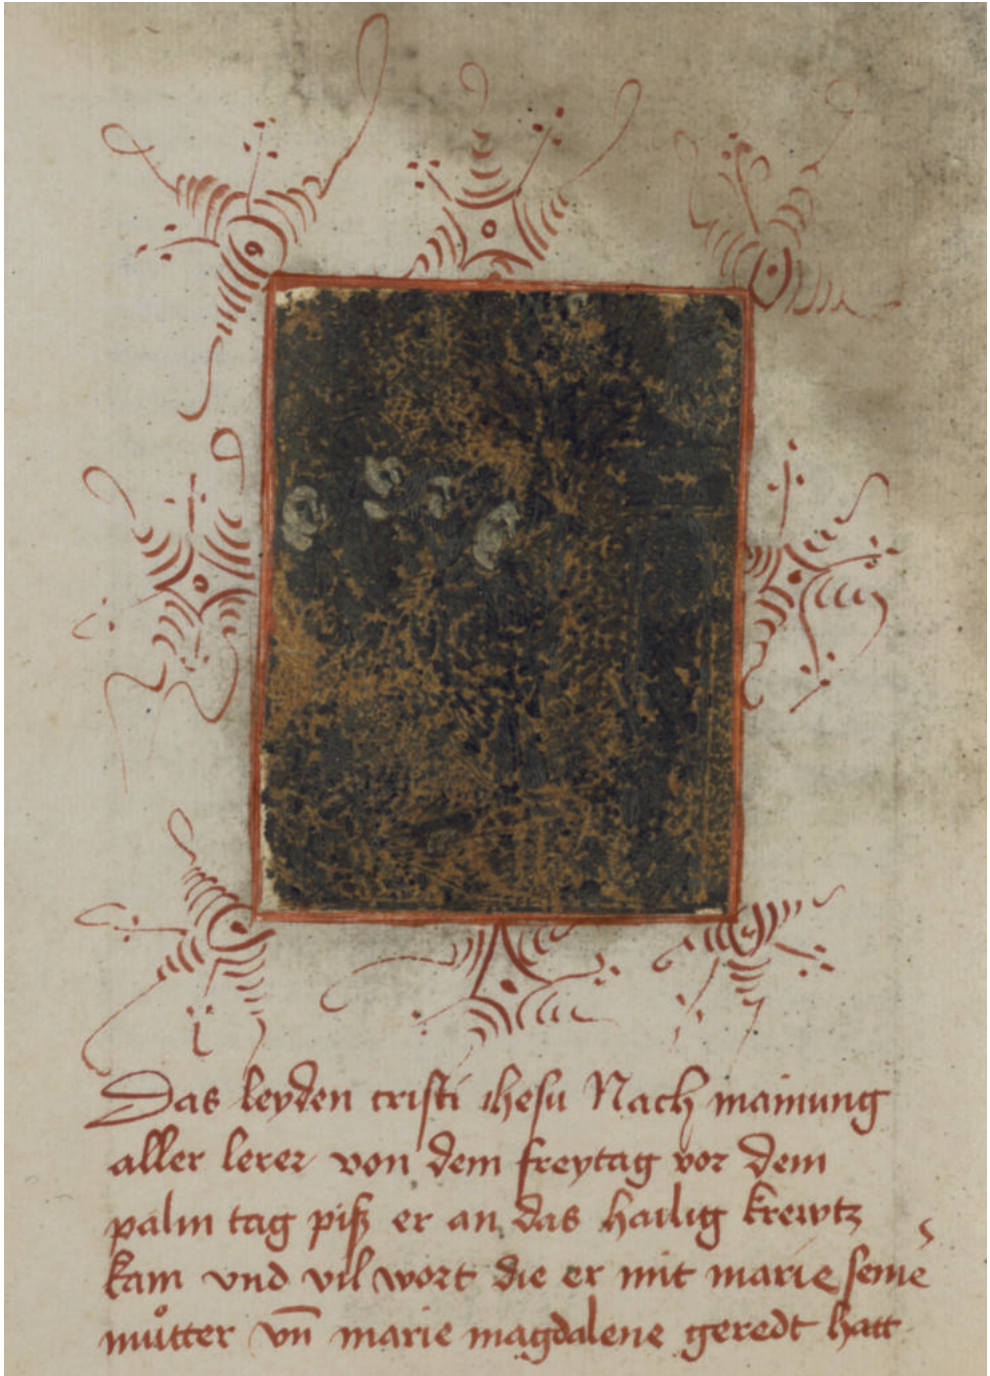 Das leyden cristi ihesu Nach mainung
aller lerer von dem freytag vor dem
palm tag piß er an das hailig krewtz
kam vnd vil wort die er mit marie seinē
muͦtter vn̄ marie magdalene geredt hatt